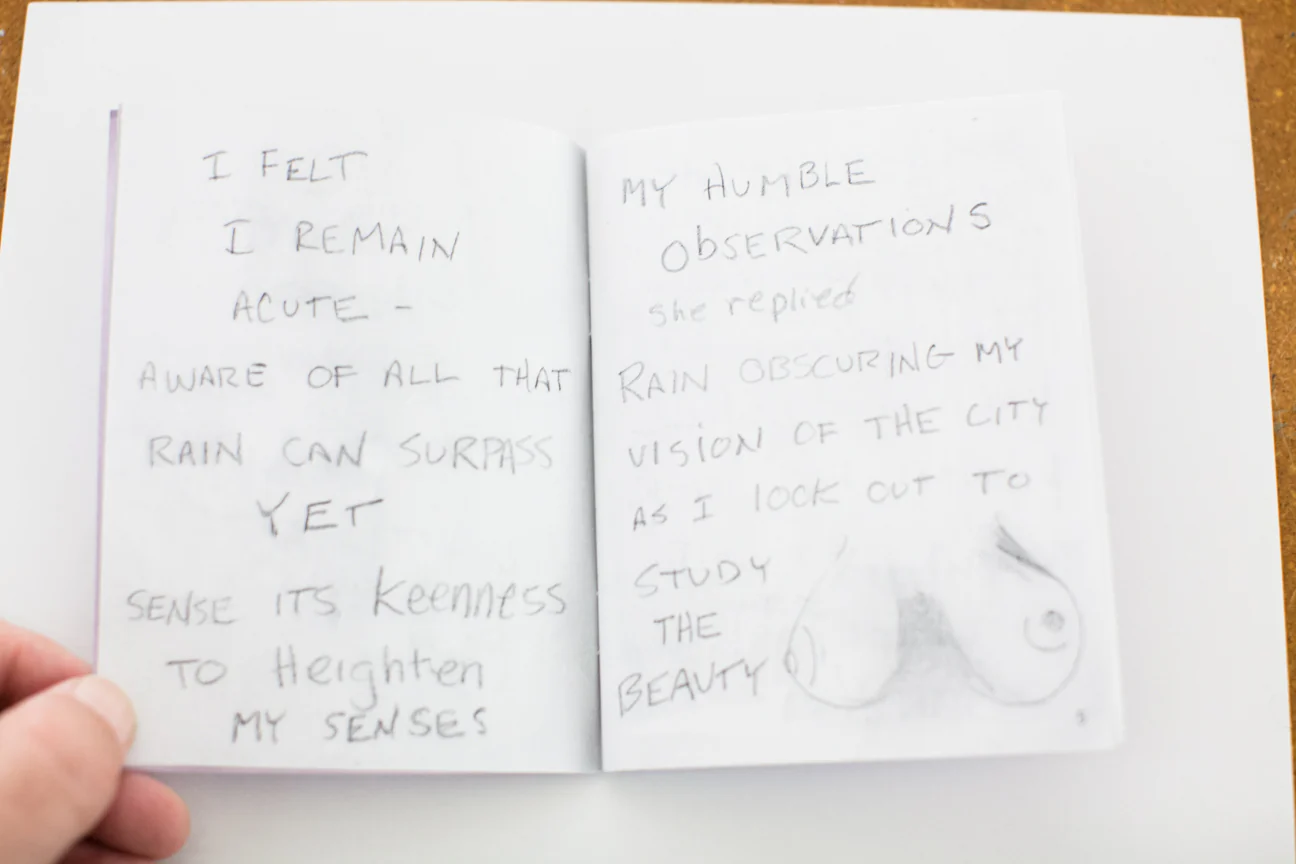 I FELT
I REMAIN
ACUTE -
AWARE OF ALL THAT
RAIN CAN SURPASS
YET
SENSE ITS Keenness
TO Heighten
MY SENSES
MY HUMBLE
ObSERVATIONS
she replied
RAIN OBSCURING MY
VISION OF THE CITY
AS I lOOK OUT TO
STUDY
THE
BEAUTY